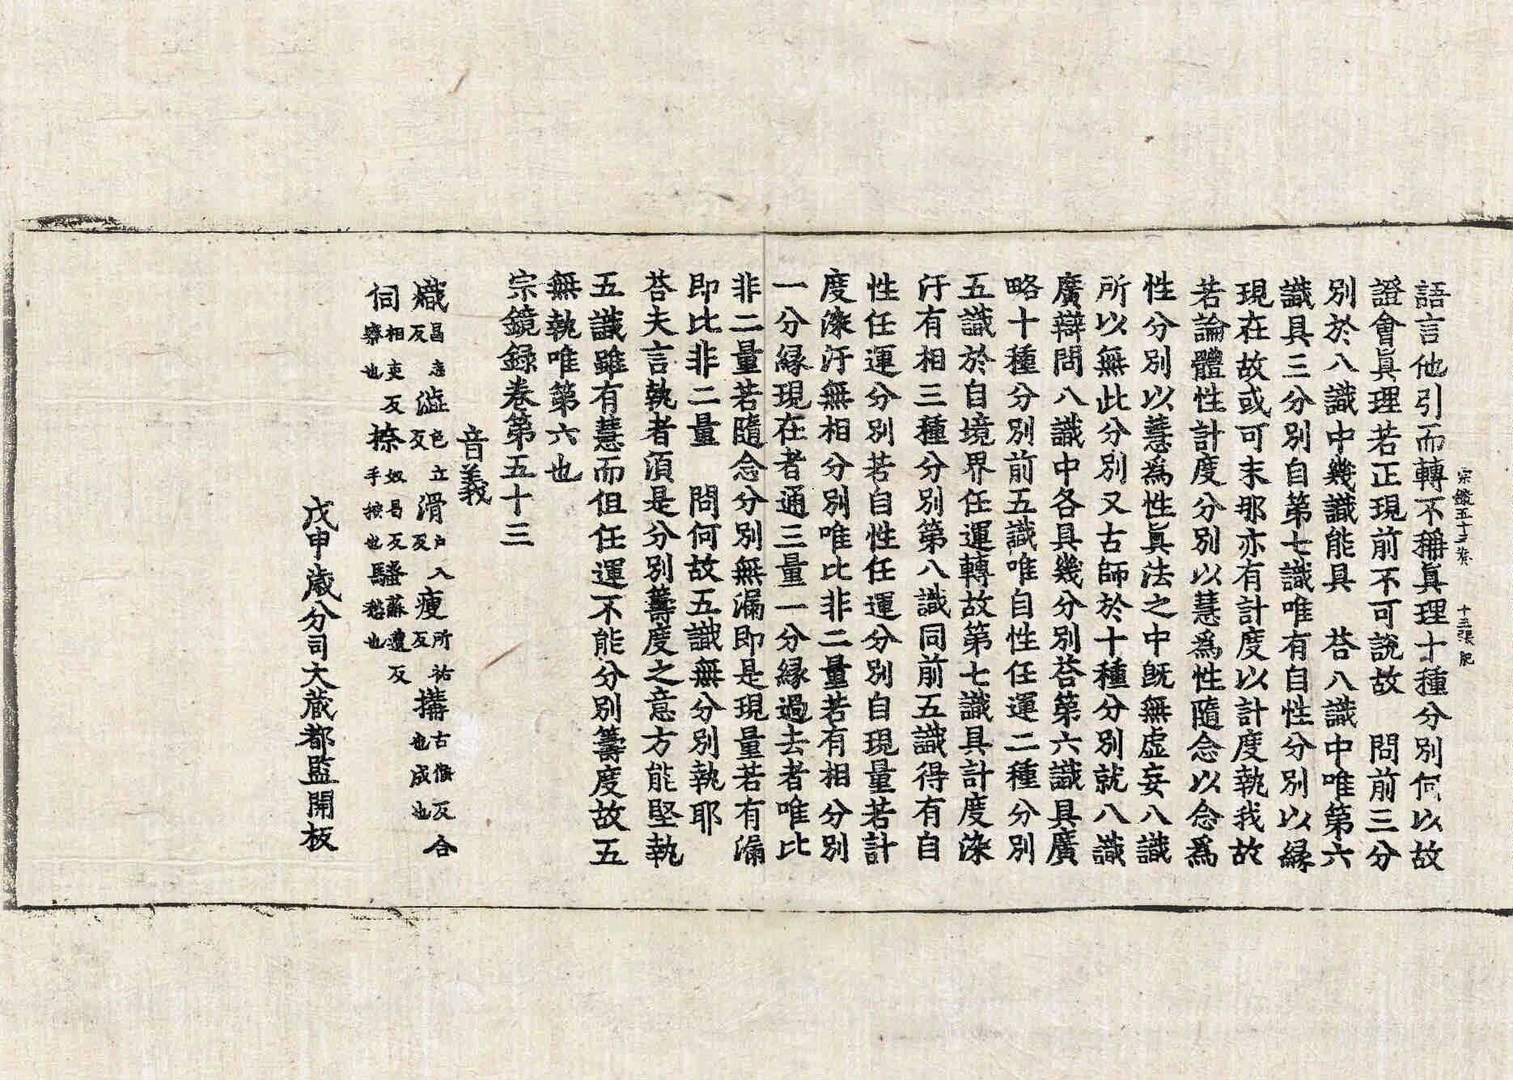 宗鏡五十三卷 十三張 肥
語言他引而轉不稱眞理十種分別何以故
證會眞理若正現前不可說故 問前三分
別於八識中幾識能具 荅八識中唯第六
識具三分別自第七識唯有自性分別以緣
現在故或可末那亦有計度以計度執我故
若論體性計度分別以慧爲性隨念以念爲
性分別以慧爲性眞法之中旣無虛妄八識
所以無此分別又古師於十種分別就八識
廣辯問八識中各具幾分別荅第六識具廣
略十種分別前五識唯自性任運二種分別
五識於自境界任運轉故第七識具計度染
汙有相三種分別第八識同前五識得有自
性任運分別若自性任運分別自現量若計
度染汙無相分別唯比非二量若有相分別
一分緣現在者通三量一分緣過去者唯比
非二量若隨念分別無漏即是現量若有漏
即比非二量 問何故五識無分別執耶
荅夫言執者須是分別籌度之意方能堅執
五識雖有慧而但任運不能分別籌度故五
無執唯第六也
宗鏡錄卷第五十三
音義
熾昌志反澁色立反滑戶八反瘦所祐反搆古候反合也成也
伺相吏反察也捺奴曷反手按也騷蘇遭反愁也
戊申歲分司大藏都監開板